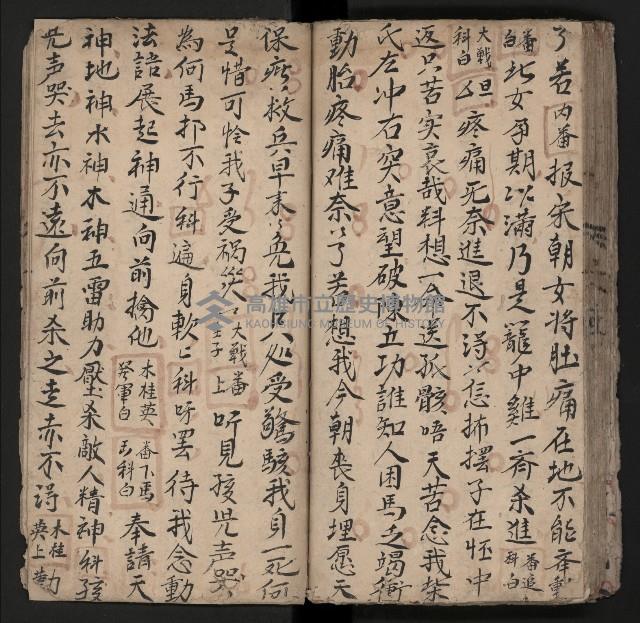 了 若 內番 报宋朝女将肚痛在地不能
番白 此女孕期以满乃是籠中雞一齊杀進 番追科白
大戰科白 旦 疼痛无奈進退不得 怎 擺子在怀中
返只苦实哀哉料想一命送孤骸唔天苦念我柴
氏左冲右突意望破陳立功誰知人困馬乏竭
動胎疼痛难奈 了若想我今朝丧身埋 天
保 救兵早来 免我 人处受驚駭我身一死何
足惜可怜我子受祸災 生子 戰番上 听見孩児声哭
為何馬邦不行科遍身軟 科呀罢待我念動
法語展起神通向前擒他 木桂英 番下馬 眾軍白 天科白 奉請天
神地神水神木神五雷助力壓杀敵人精神科孩
児声哭去亦不遠向前杀之走亦不得 木桂英上
高雄市立歷史博物館
KAOHSIUNG MUSEUM OF HISTORY